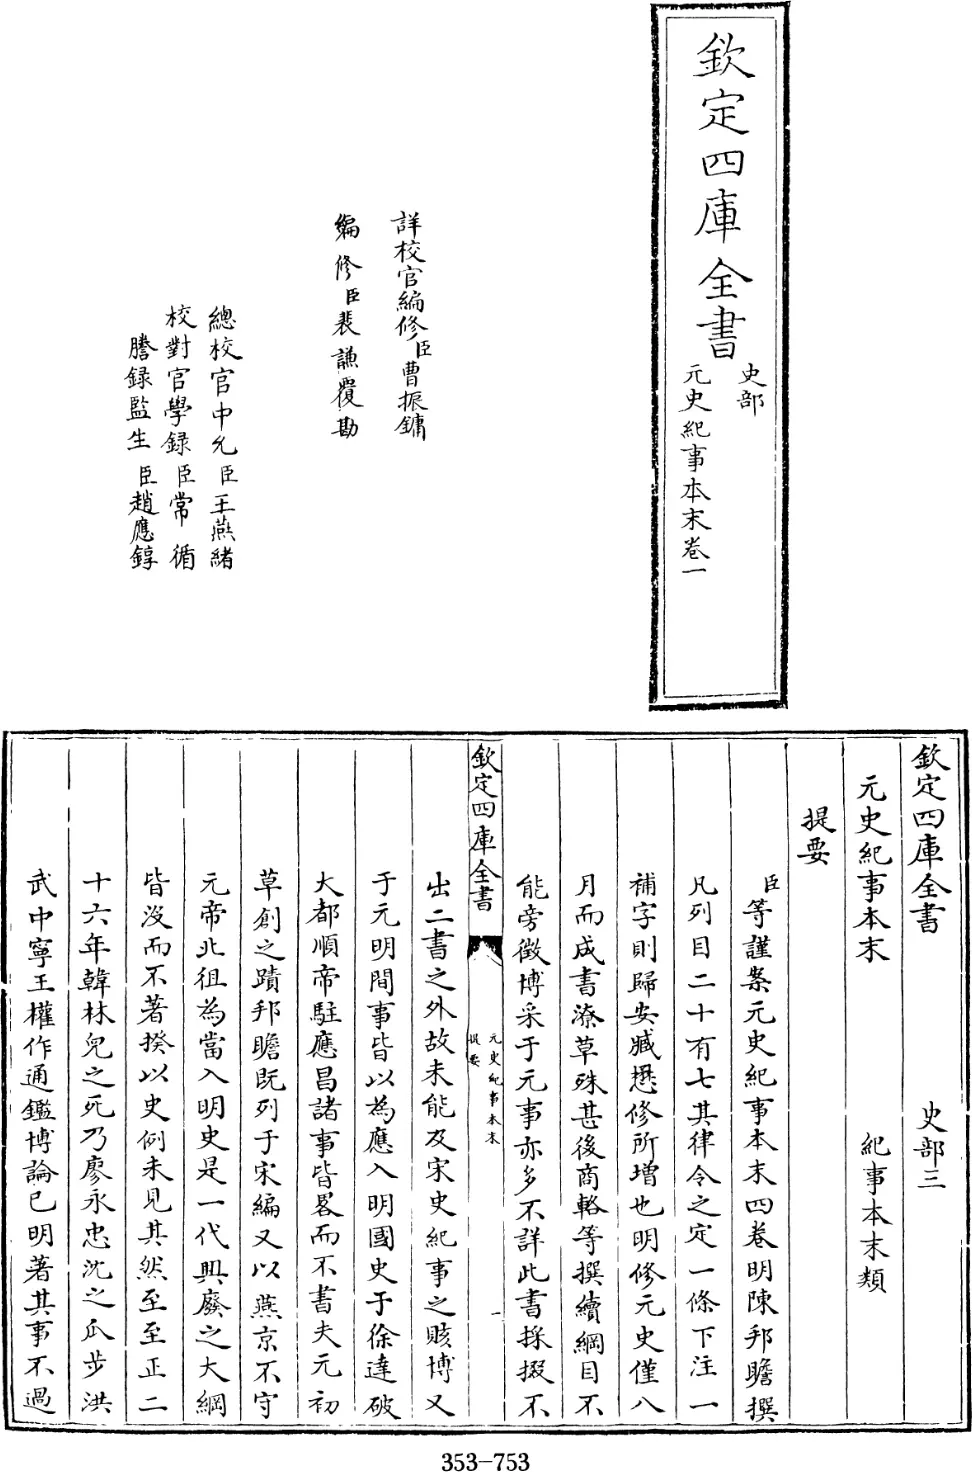 欽定四庫全書
史部
元史紀事本末卷一
詳校官編修臣曹振鏞
編修臣裴謙覆勘
總校官中允臣王燕緒
校對官學録臣常循
謄録監生臣趙應錞
欽定四庫全書 史部三
元史紀事本末 紀事本末類
提要
臣等謹案元史紀事本末四卷明陳邦瞻撰
凡列目二十有七其律令之定一條下注一
補字則歸安臧懋修所增也明修元史僅八
月而成書潦草殊甚後商輅等撰續綱目不
能旁徴博采于元事亦多不詳此書採掇不
欽定四庫全書
元史紀事本末
提要
一
出二書之外故未能及宋史紀事之賅博又
于元明間事皆以為應入明國史于徐達破
大都順帝駐應昌諸事皆畧而不書夫元初
草創之蹟邦瞻既列于宋編又以燕京不守
元帝北徂為當入明史是一代興廢之大綱
皆没而不著揆以史例未見其然至至正二
十六年韓林兒之死乃廖永忠沈之瓜步洪
武中寧王權作通鑑博論已明著其事不過
353-753